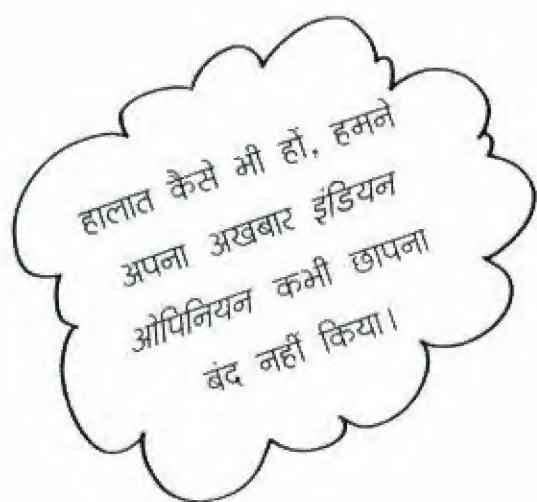 हालात कैसे भी हों, हमने
अपना अखबार इंडियन
ओपिनियन कभी छापना
बंद नहीं किया।